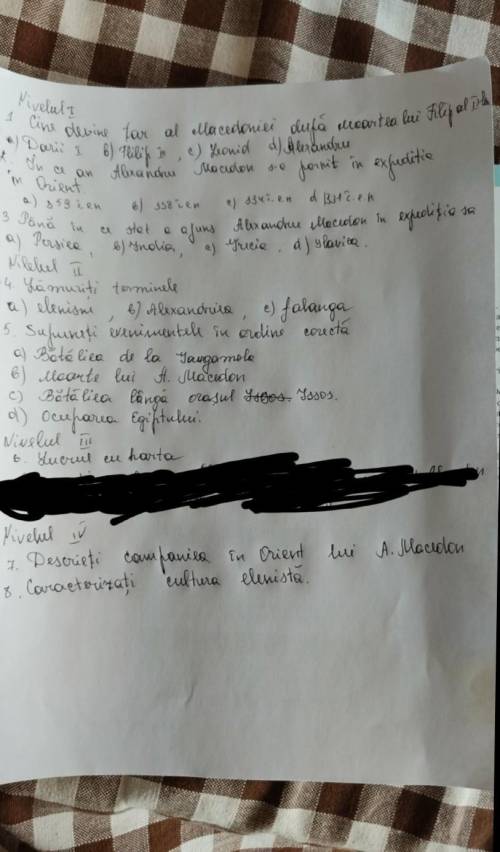 Nivelul I
1 Cine devine țar al Macedoniei după moartea lui Filip al II-lea
a) Darii I b) Filip III, c) Leonid d) Alexandru
2. In ce an Alexandru Macedon s-a pornit in expediția
in Orient.
a) 359 i.en b) 338 i.en c) 334 i.en d) 331 i.e.n
3 Până in ce stat a ajuns Alexandru Macedon in expediția sa
a) Persica, b) India, c) Grecia, d) Slavica.
Nivelul II
4. Lămuriți terminele
a) elenism, b) Alexandria, c) falanga
5. Supuneți evenimentele in ordine corectă
a) Bătălia de la Gaugamela
b) Moarte lui A. Macedon
c) Bătălia lângă orașul Issos.
d) Ocuparea Egiptului.
Nivelul III
6. Lucrul cu harta
Nivelul IV
7. Descrieți campania in Orient lui A. Macedon
8. Caracterizați cultura elenistă.